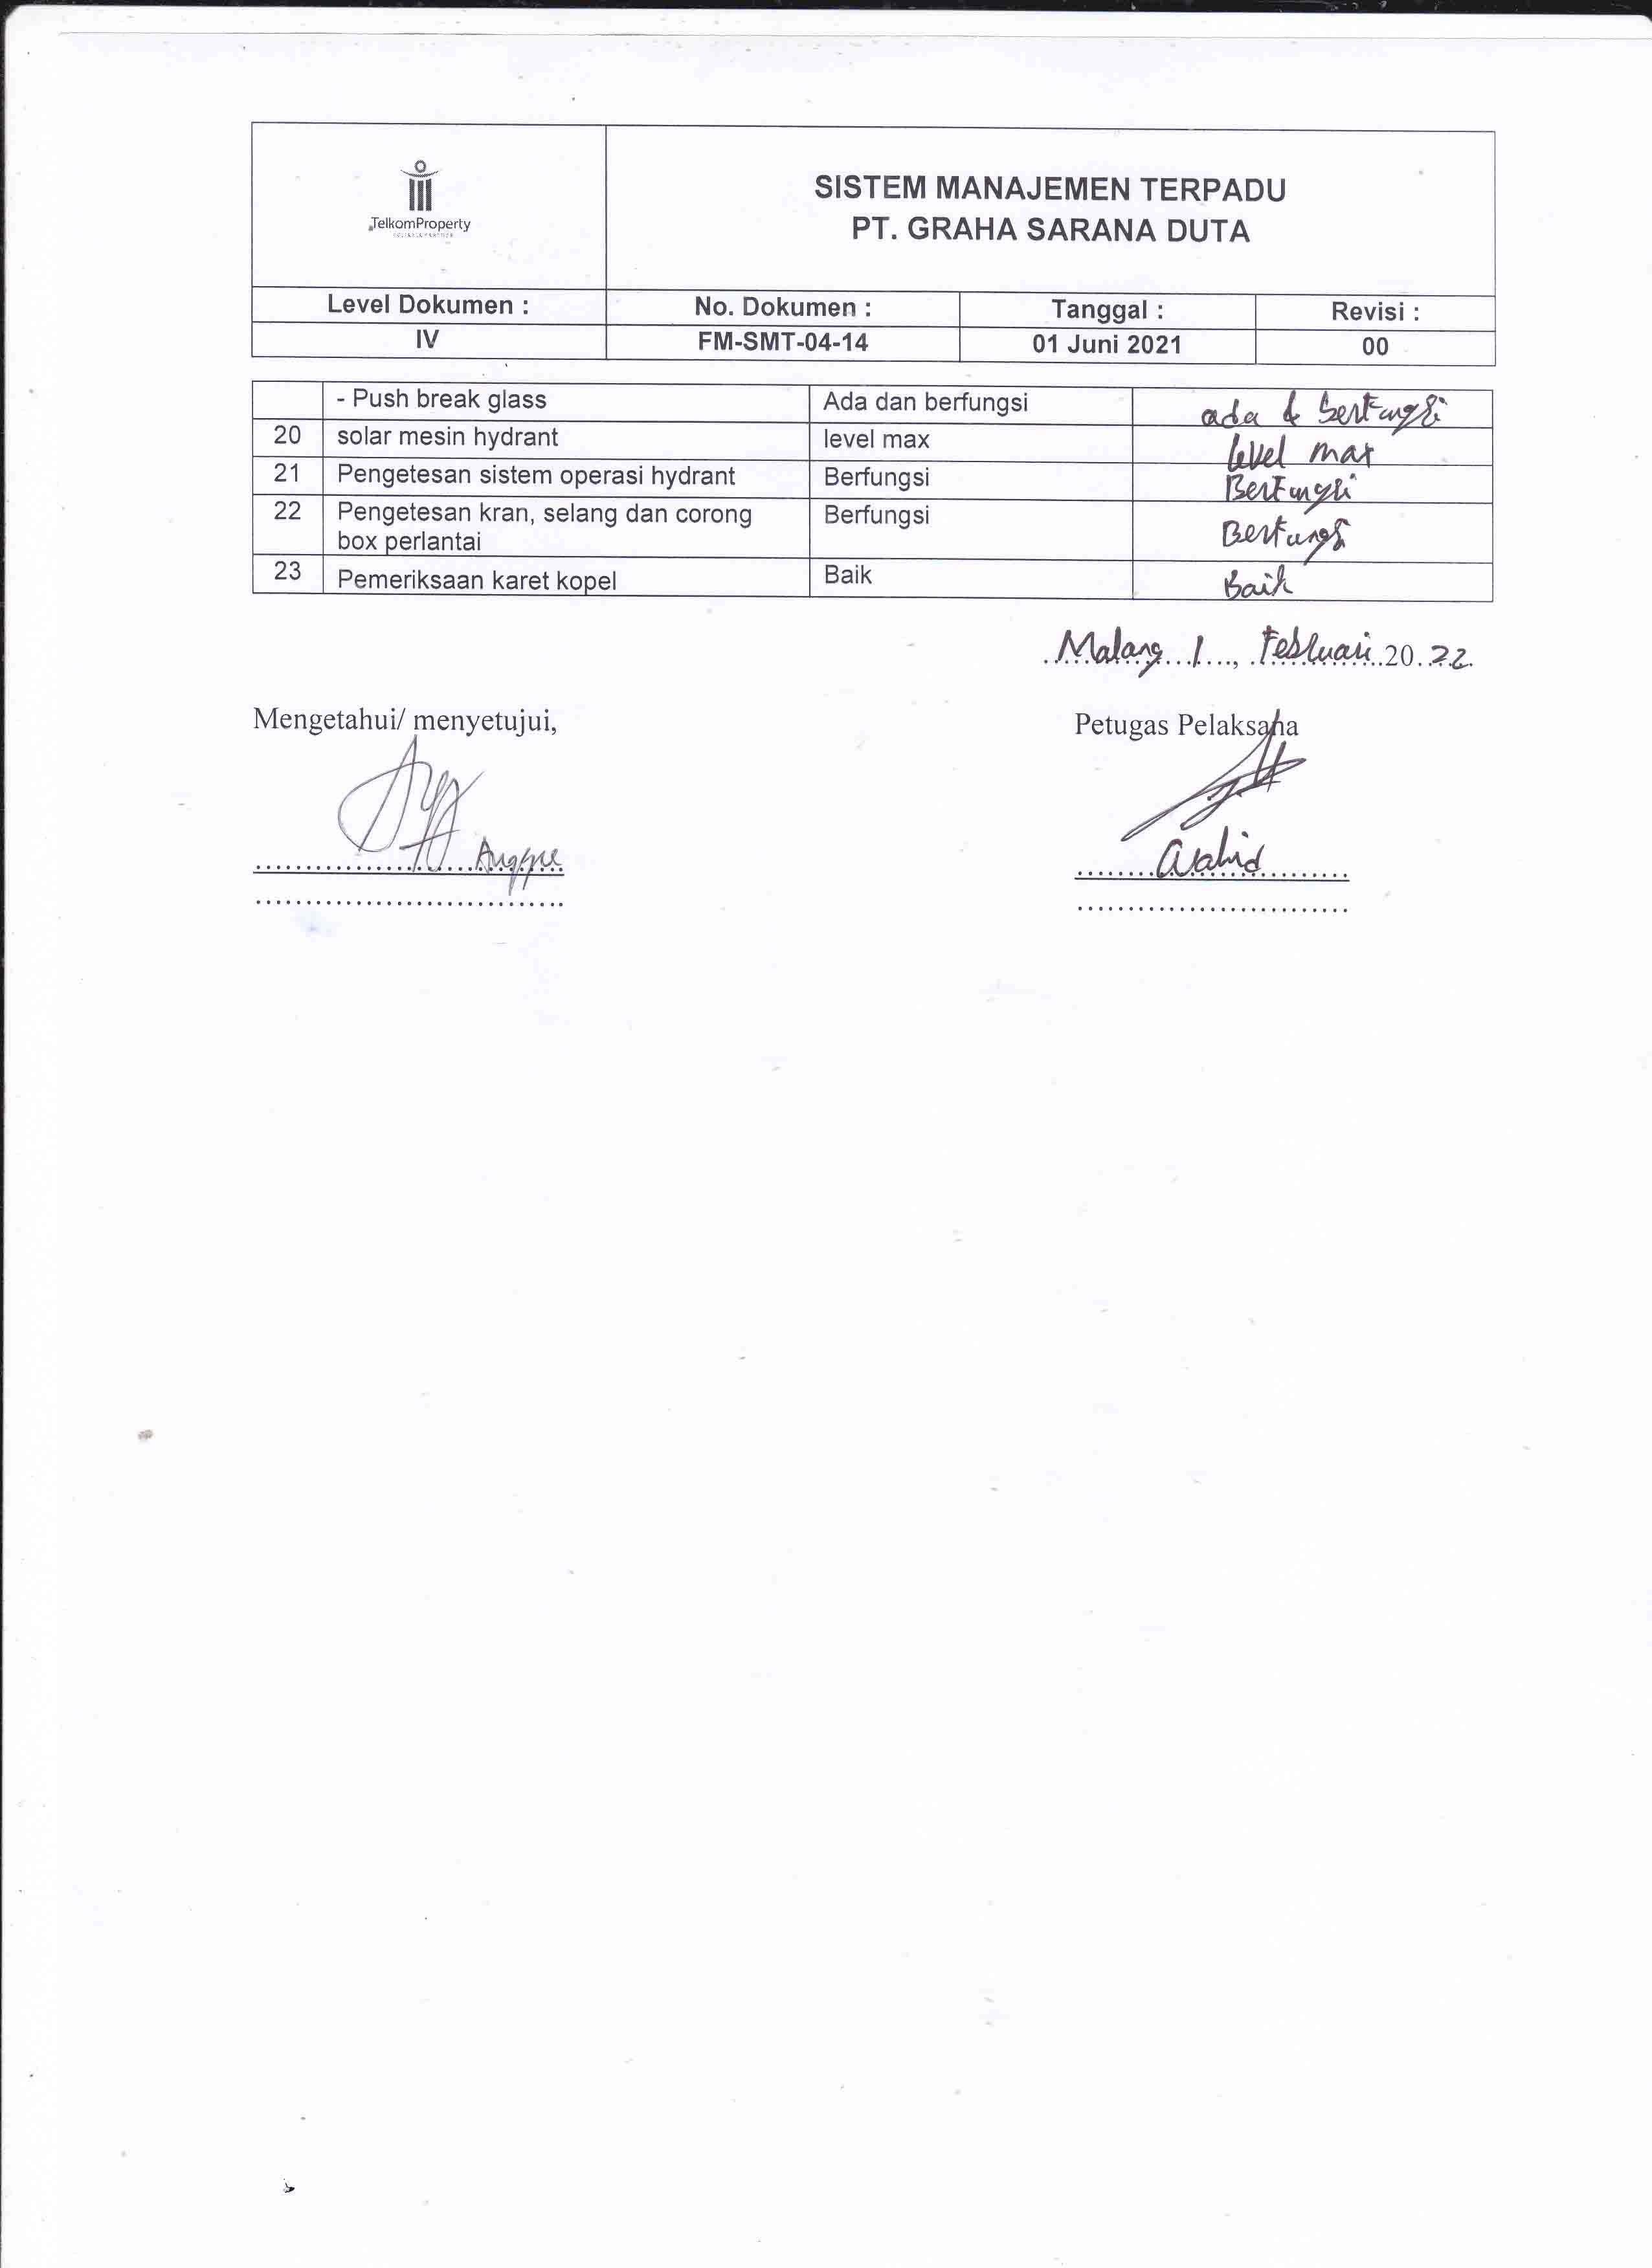 TelkomProperty
SISTEM MANAJEMEN TERPADU
PT. GRAHA SARANA DUTA
Level Dokumen : No. Dokumen : Tanggal : Revisi :
IV FM-SMT-04-14 01 Juni 2021 00
- Push break glass Ada dan berfungsi ada & berfungsi
20 solar mesin hydrant level max level max
21 Pengetesan sistem operasi hydrant Berfungsi Berfungsi
22 Pengetesan kran, selang dan corong Berfungsi Berfungsi
box perlantai
23 Pemeriksaan karet kopel Baik Baik
Malang 1, Februari 2022
Mengetahui/ menyetujui, Petugas Pelaksana
Wahid